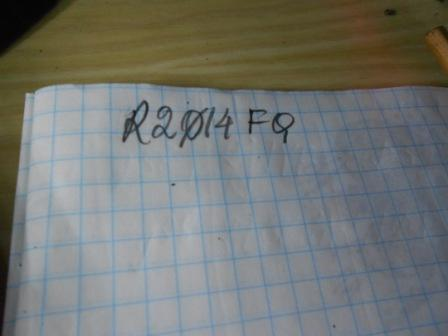 R2Ø14 FQ